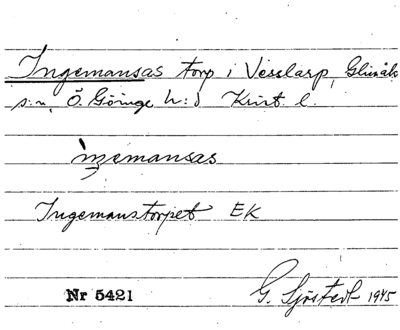 Ingemansas torp i Vesslarp, Glimåk
s:n, Ö. Göinge h:d Krist. l.
ingemansas
Ingemanstorpet EK
Nr 5421 G. Sjöstedt 1945